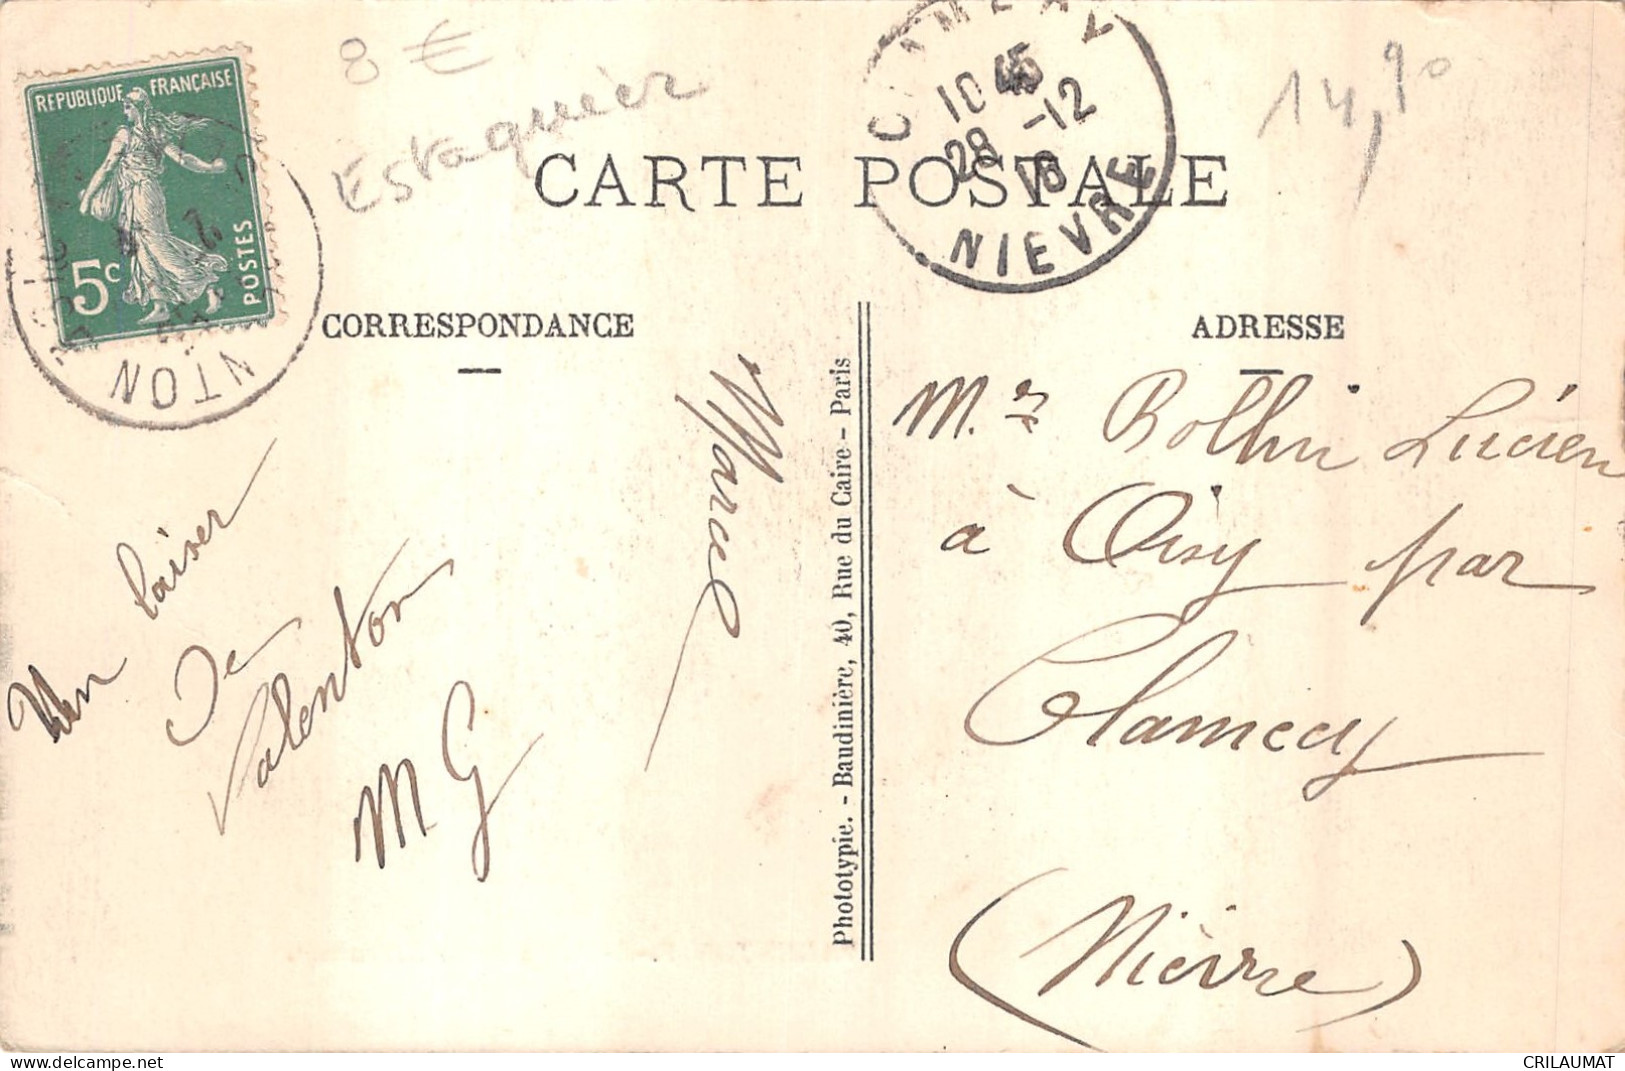 8 €
Estaquier
14,90
REPUBLIQUE FRANÇAISE
5c
POSTES
NTON
10 45
28 -12
NIEVRE
CARTE POSTALE
CORRESPONDANCE
ADRESSE
Un baiser
de
Valenton
M G
Marcel
Phototypie. - Baudinière, 40, Rue du Caire - Paris
M.r Rollin Lucien
à Oisy par
Clamecy
(Nièvre)
CRILAUMAT